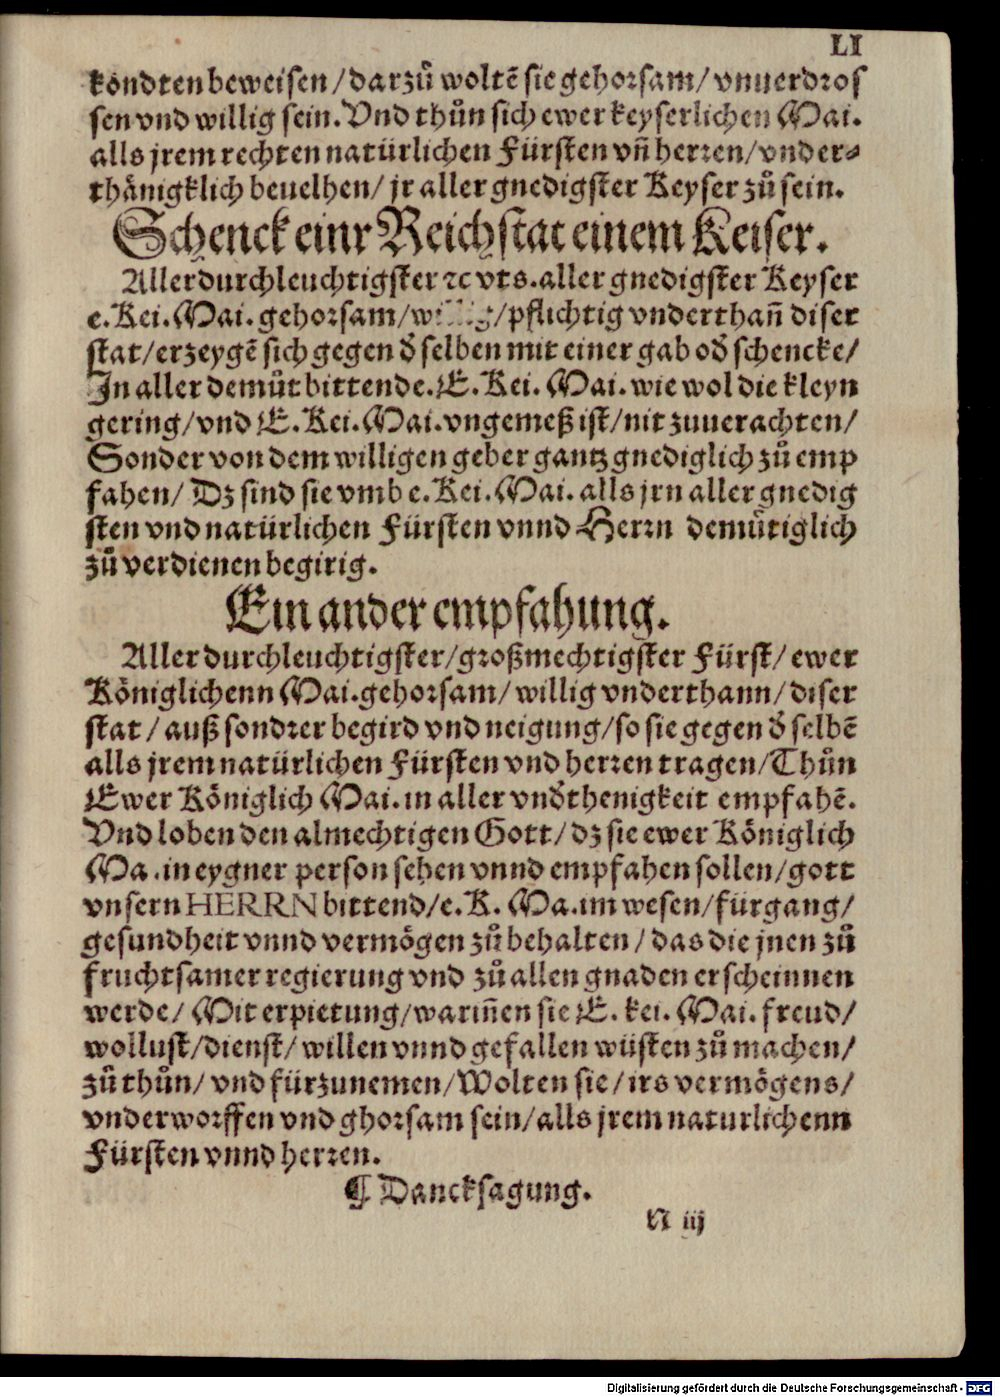 LI
köndten beweisen/darzů woltē sie gehorsam/vnuerdros
sen vnd willig sein. Vnd thůn sich ewer keyserlichen Mai.
alls jrem rechten natürlichen Fürsten vñ herren/vnder-
thänigklich beuelhen/jr aller gnedigster Keyser zů sein.
Schenck einr Reichstat einem Keiser.
Allerdurchleuchtigster ꝛc vts. aller gnedigster Keyser
e. Kei. Mai. gehorsam/willig/pflichtig vnderthañ diser
stat/erzeygē sich gegen d̕ selben mit einer gab od̕ schencke/
In aller demůt bittende. E. Kei. Mai. wie wol die kleyn
gering/vnd E. Kei. Mai. vngemeß ist/nit zuuerachten/
Sonder von dem willigen geber gantz gnediglich zů emp
fahen/ Dz sind sie vmb e. Kei. Mai. alls jrn aller gnedig
sten vnd natürlichen Fürsten vnnd Herrn demütiglich
zů verdienen begirig.
Ein ander empfahung.
Allerdurchleuchtigster/großmechtigster Fürst/ewer
Königlichenn Mai. gehorsam/willig vnderthann/diser
stat/auß sondrer begird vnd neigung/so sie gegen d̕ selbē
alls jrem natürlichen Fürsten vnd herren tragen/Thůn
Ewer Königlich Mai. in aller vnd̕thenigkeit empfahē.
Vnd loben den almechtigen Gott/dz sie ewer Königlich
Ma. in eygner person sehen vnnd empfahen sollen/gott
vnsern HERRN bittend/e. K. Ma. im wesen/fürgang/
gesundheit vnnd vermögen zů behalten/das die jnen zů
fruchtsamer regierung vnd zů allen gnaden erscheinnen
werde/Mit erpietung/wariñen sie E. kei. Mai. freud/
wollust/dienst/willen vnnd gefallen wüsten zů machen/
zů thůn/vnd fürzunemen/Wolten sie/irs vermögens/
vnderworffen vnd ghorsam sein/alls jrem naturlichenn
Fürsten vnnd herren.
¶ Dancksagung.
N iij
Digitalisierung gefördert durch die Deutsche Forschungsgemeinschaft - DFG